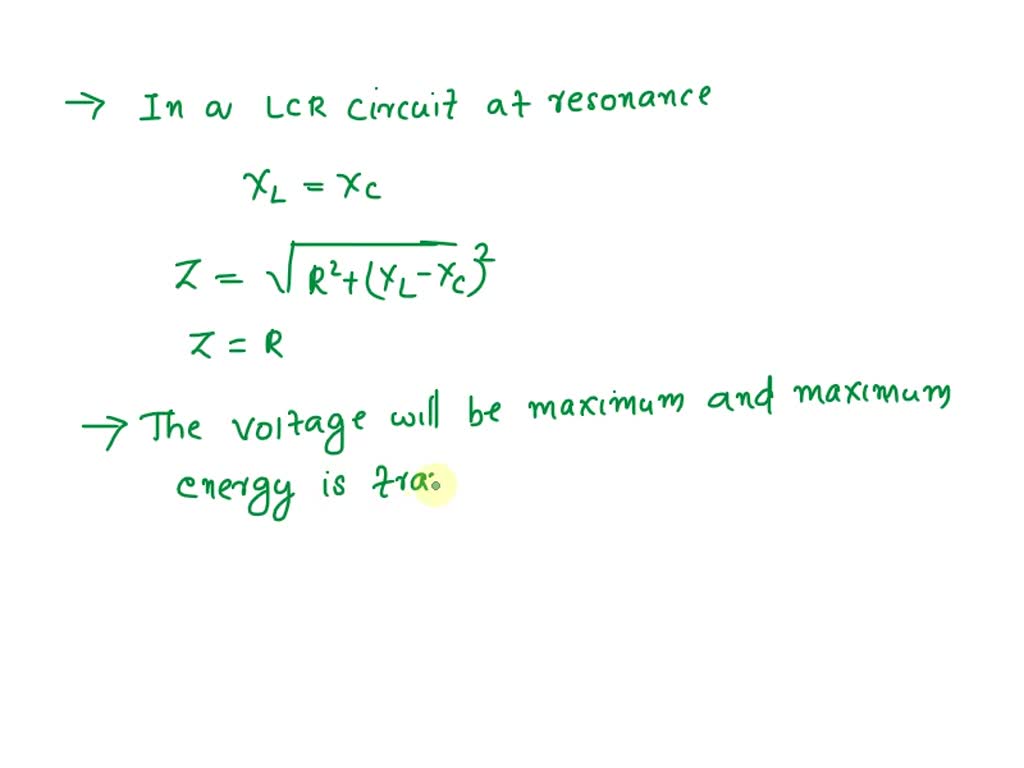 → In a LCR circuit at resonance
X_L = X_C
Z = √R²+(X_L-X_C)²
Z = R
→ The voltage will be maximum and maximum
energy is tra